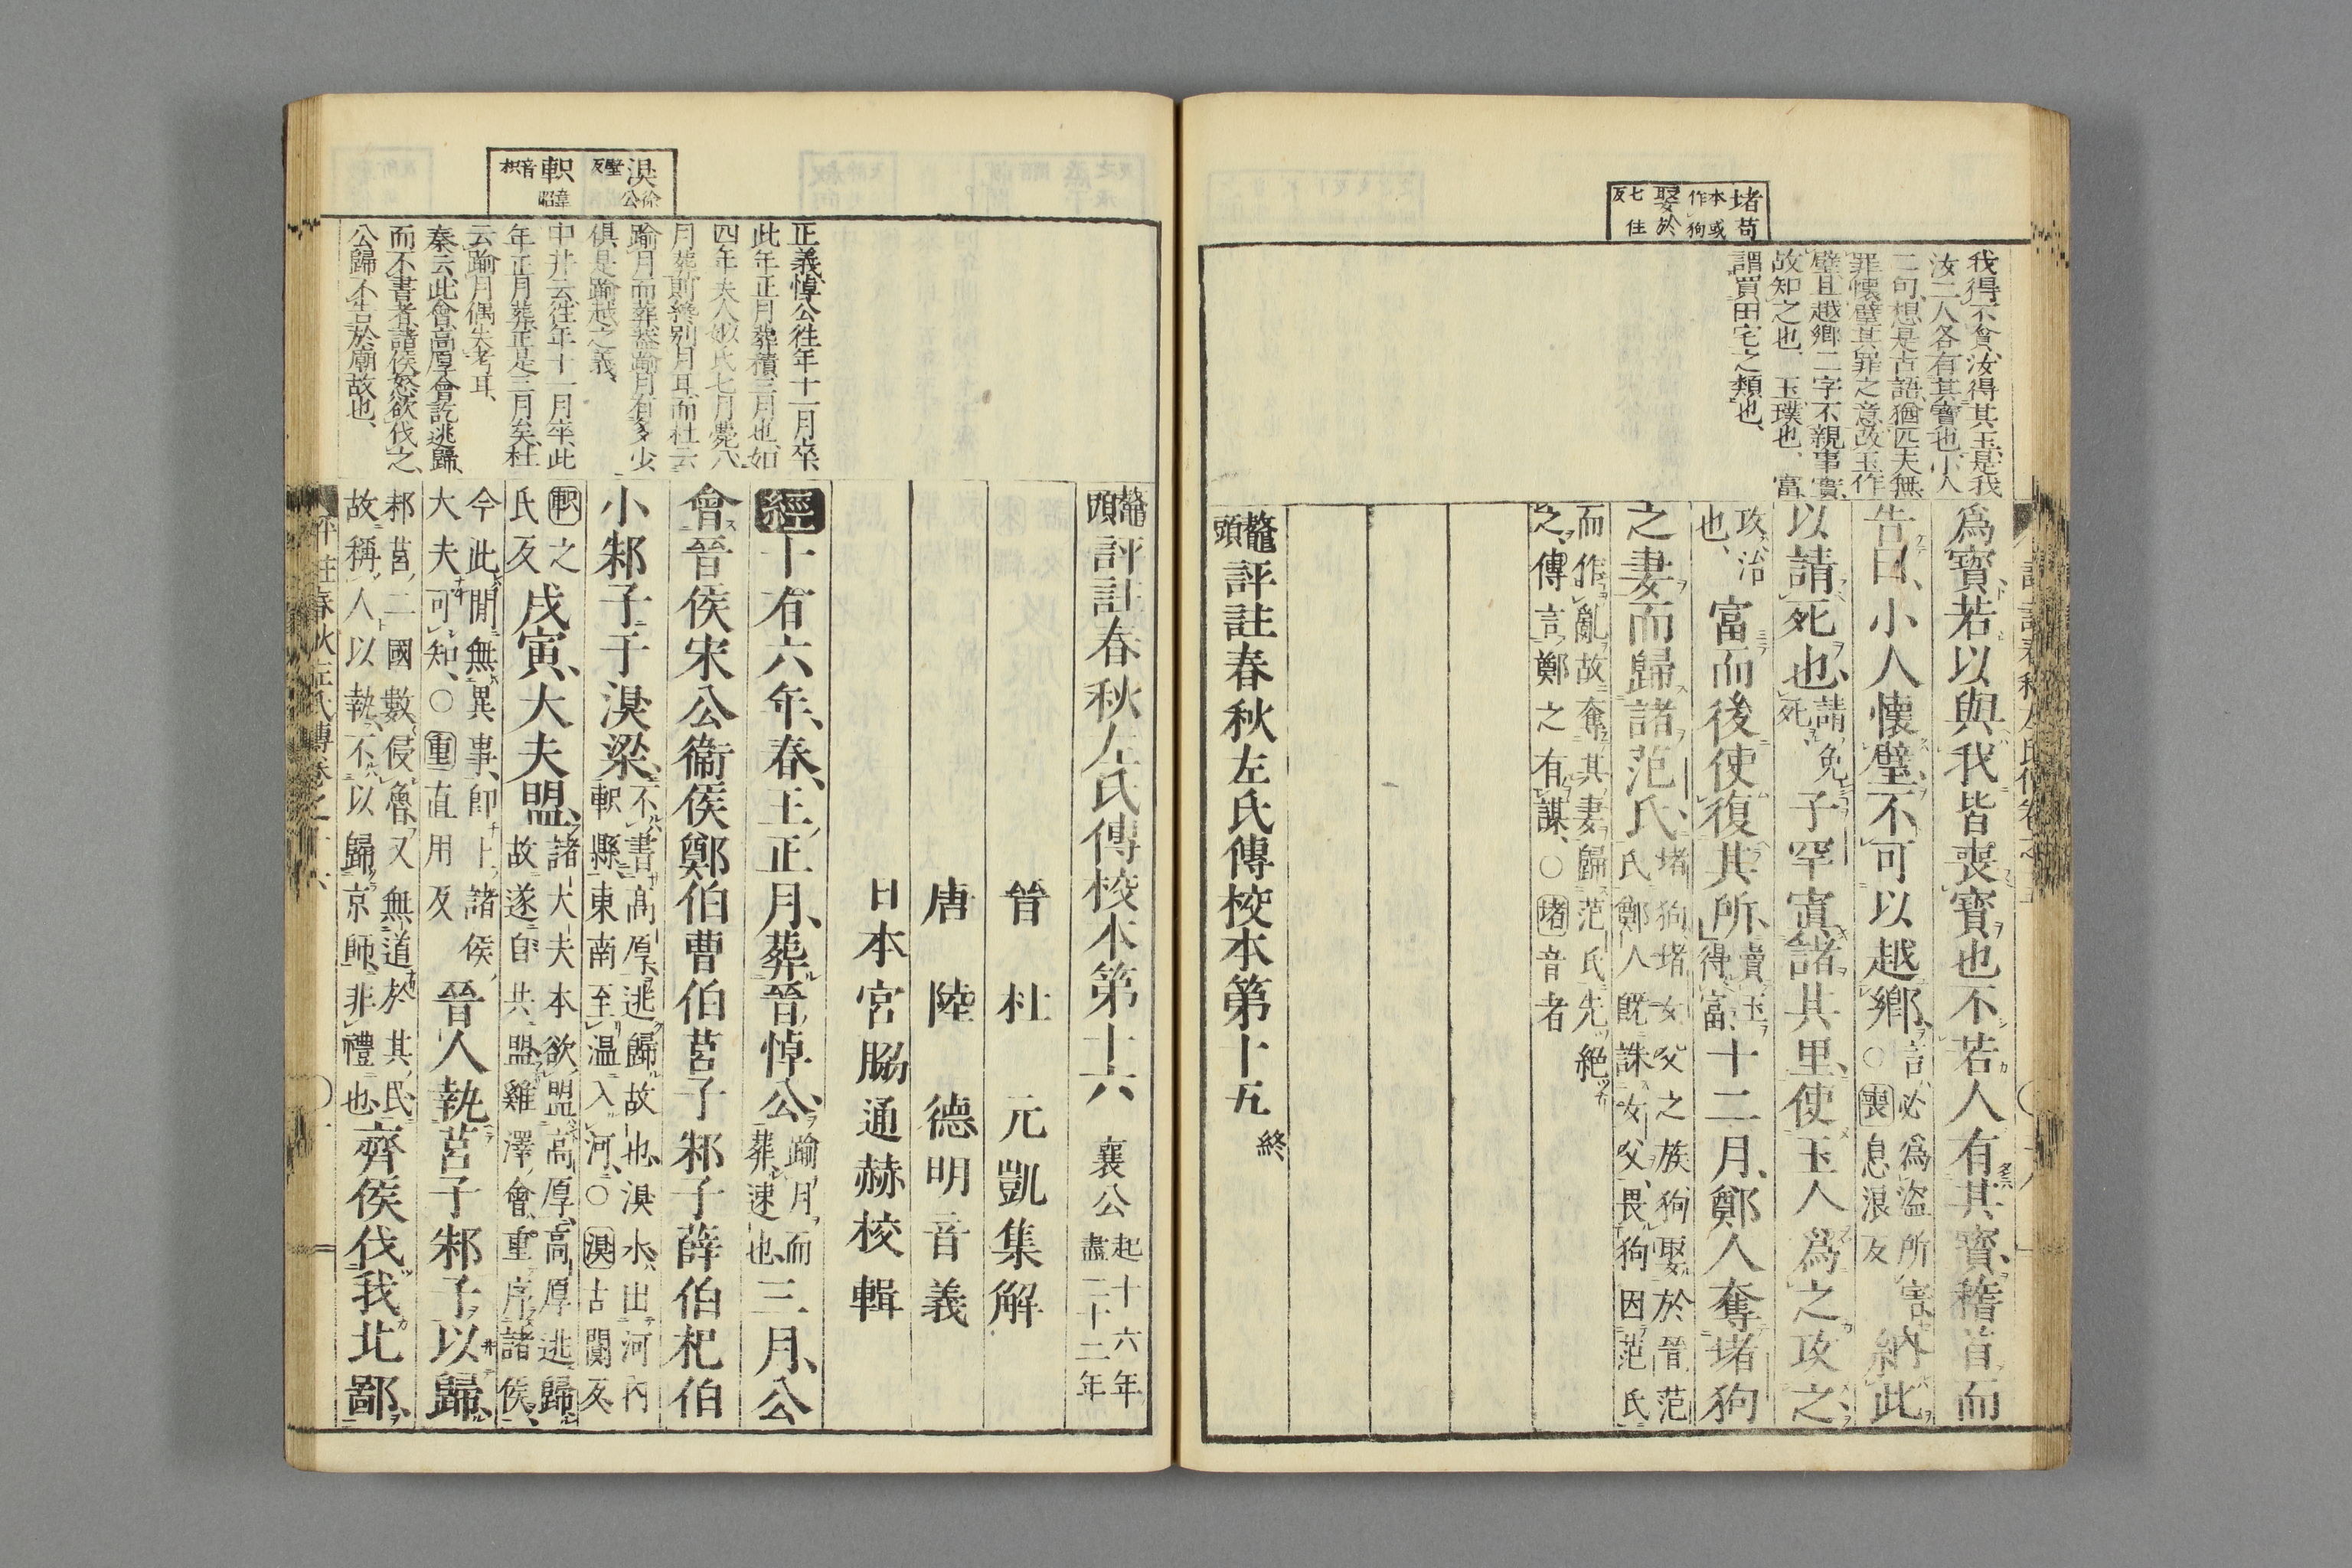 堵苟
本或作狗
娶於
七住反
我得不貪、汝得其玉、是我
汝二人各有其寶也、小人
二句、想是古語、猶匹夫無
罪懷璧其罪之意、故玉作
璧、且越鄉二字不親事實、
故知之也、玉、璞也、富、
謂買田宅之類也、
爲寶、若以與我、皆喪寶也、不若人有其寶、稽首而
告曰、小人懷璧、不可以越鄉、言必爲盜所害、○喪息浪反納此
以請死也、請免死、子罕寘諸其里、使玉人爲之攻之、
攻、治也、富而後使復其所、賣玉得富、十二月、鄭人奪堵狗
之妻、而歸諸范氏、堵狗、堵女父之族、狗娶於晉范氏、鄭人既誅女父、畏狗因范氏
而作亂、故奪其妻歸范氏、先絕之、傳言鄭之有謀、○堵音者
鼇頭評註春秋左氏傳校本第十五終
湨
徐公壁反
軹
韋昭音枳
正義、悼公往年十一月卒、
此年正月葬、積三月也、如
四年夫人姒氏七月薨、八
月葬、則纔別月耳、而杜云
踰月而葬、蓋踰月有多少、
俱是踰越之義、
中井云、往年十一月卒、此
年正月葬、正是三月矣、杜
云踰月、偶失考耳、
秦云、此會高厚會訖逃歸、
而不書者、諸侯怒欲伐之、
公歸不告於廟故也、
鼇頭評註春秋左氏傳校本第十六 襄公起十六年盡二十二年
晉 杜 元凱集解
唐 陸 德明音義
日本 宮脇通赫校輯
經十有六年、春、王正月、葬晉悼公、踰月而葬、速也、三月、公
會晉侯宋公衞侯鄭伯曹伯莒子邾子薛伯杞伯
小邾子于湨梁、不書高厚、逃歸故也、湨水、出河內軹縣東南、至溫入河、○湨古闃反
軹之氏反戊寅、大夫盟、諸大夫本欲盟高厚、高厚逃歸、故遂自共盟、雞澤會、重序諸侯、
今此閒無異事、即上諸侯大夫可知、○重直用反晉人執莒子邾子以歸、
邾莒二國數侵魯、又無道於其民、故稱人以執、不以歸京師、非禮也、齊侯伐我北鄙、